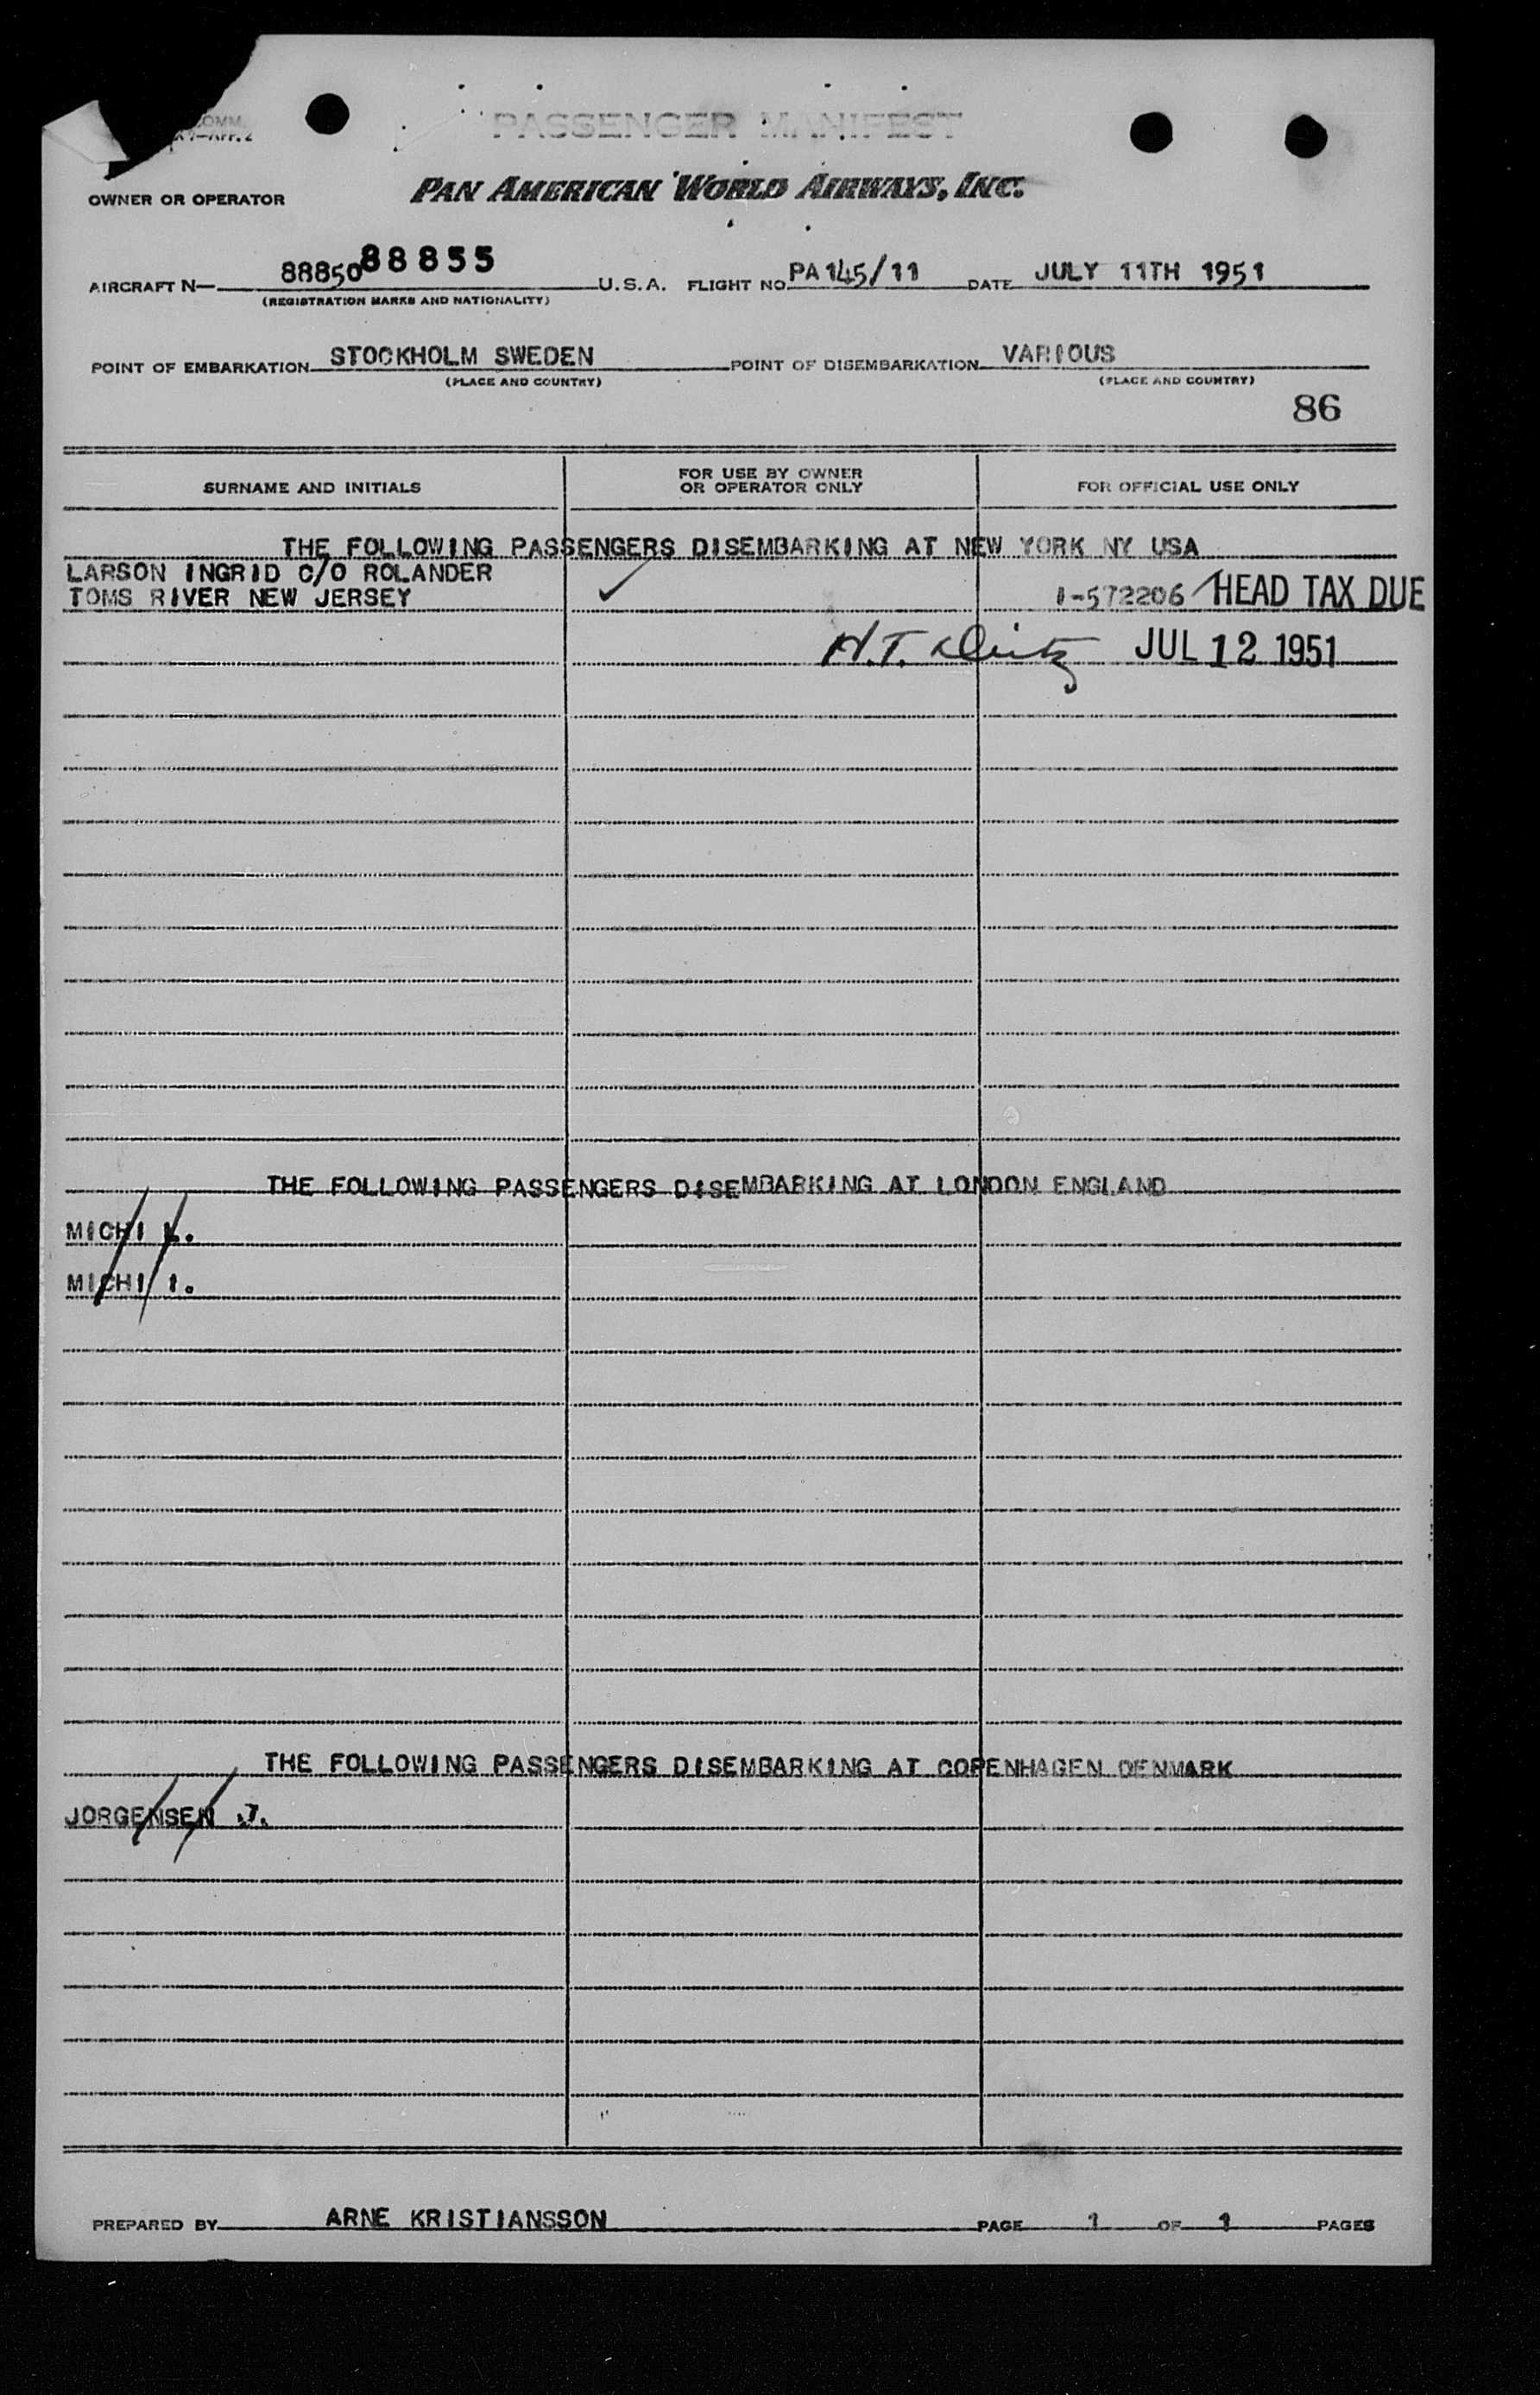 COMM.
PASSENGER MANIFEST
OWNER OR OPERATOR PAN AMERICAN WORLD AIRWAYS, INC.
AIRCRAFT N— 88850 88855 U.S.A. FLIGHT NO. PA145/11 DATE JULY 11TH 1951
(REGISTRATION MARKS AND NATIONALITY)
POINT OF EMBARKATION STOCKHOLM SWEDEN POINT OF DISEMBARKATION VARIOUS
(PLACE AND COUNTRY) (PLACE AND COUNTRY)
86
SURNAME AND INITIALS FOR USE BY OWNER OR OPERATOR ONLY FOR OFFICIAL USE ONLY
THE FOLLOWING PASSENGERS DISEMBARKING AT NEW YORK NY USA
LARSON INGRID C/O ROLANDER
TOMS RIVER NEW JERSEY ✓ 1-572206 HEAD TAX DUE
H.T. JUL 12 1951
THE FOLLOWING PASSENGERS DISEMBARKING AT LONDON ENGLAND
MICHI L.
MICHI I.
THE FOLLOWING PASSENGERS DISEMBARKING AT COPENHAGEN DENMARK
JORGENSEN J.
PREPARED BY ARNE KRISTIANSSON PAGE 1 OF 1 PAGES